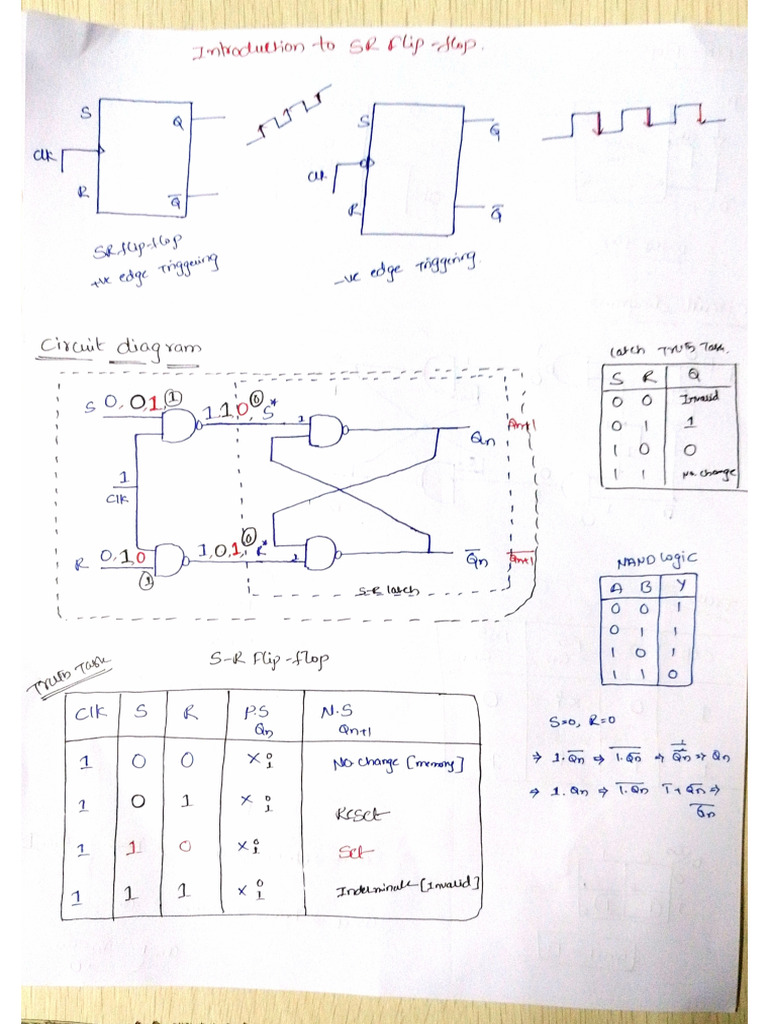 Introduction to SR Flip-flop.
S
Q
Clk
R
Q̅
SR flip-flop
+ve edge Triggering
S
Q
Clk
R
Q̅
-ve edge Triggering.
Circuit diagram
S 0, 0, 1, 1
1, 1, 0, 0 S*
Qn
Qn+1
1
Clk
R 0, 1, 0
1
1, 0, 1, 0 R*
Q̅n
Q̅n+1
S-R latch
Latch Truth Table.
S R Q
0 0 Invalid
0 1 1
1 0 0
1 1 No change
NAND Logic
A B Y
0 0 1
0 1 1
1 0 1
1 1 0
S-R Flip-flop
Truth Table
Clk S R P.S Qn N.S Qn+1
1 0 0 x 0 1 No change [memory]
1 0 1 x 0 1 Reset
1 1 0 x 0 1 Set
1 1 1 x 0 1 Indeminate [Invalid]
S=0, R=0